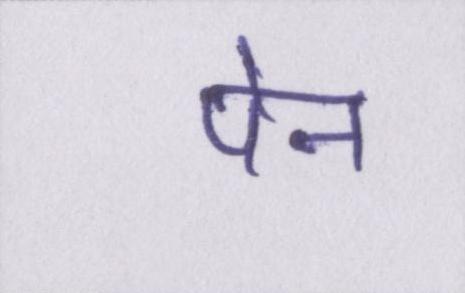 पेन